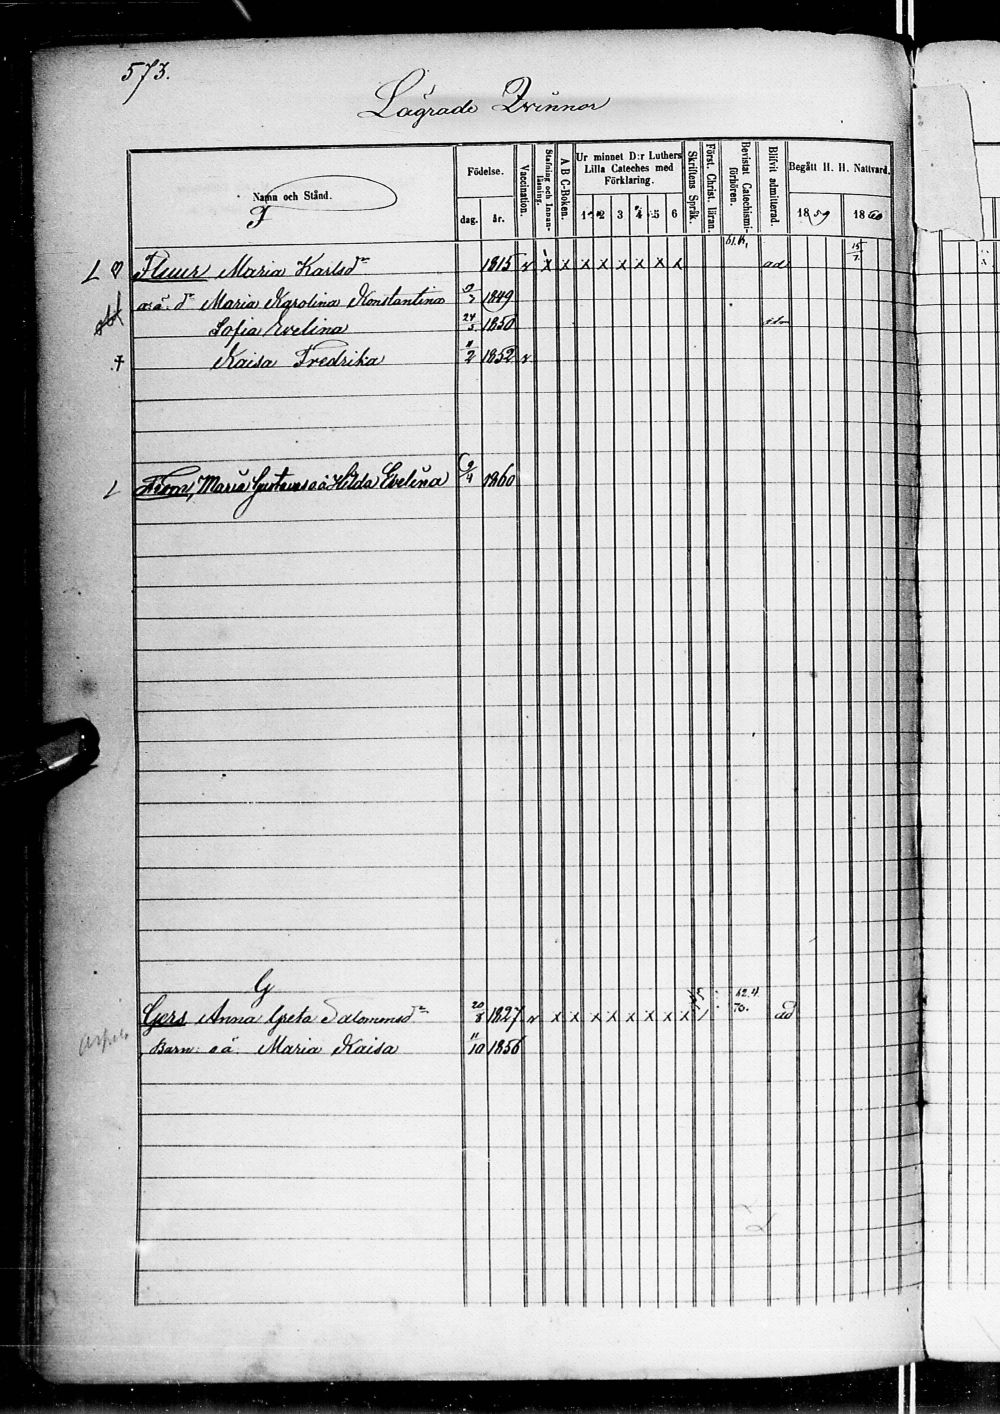 573.
Lägrade Qvinnor
Namn och Stånd.
F
Födelse.
dag.
år.
Vaccination.
Stafning och Innan-
läsning.
A B C-Boken.
Ur minnet D:r Luthers
Lilla Cateches med
Förklaring.
1 2 3 4 5 6
Skriftens Språk.
Först. Christ. läran.
Bevistat Catechismi-
förhören.
Blifvit admitterad.
Begått H. H. Nattvard.
1859
1860
L Fleur Maria Karlsdr 1815 v x x x x x x x x 61. ad 15/7
o:ä. dr Maria Karolina Konstantina 1849
Sofia Evelina 24/5 1850
† Kaisa Fredrika 11/2 1852 v
L Maria Gustava o ä Hilda Evelina 9/4 1860
G
Gers Anna Greta Salomonsdr 20/8 1827 v x x x x x x x x 62. 70. ad
Barn o ä. Maria Kaisa 11/10 1856